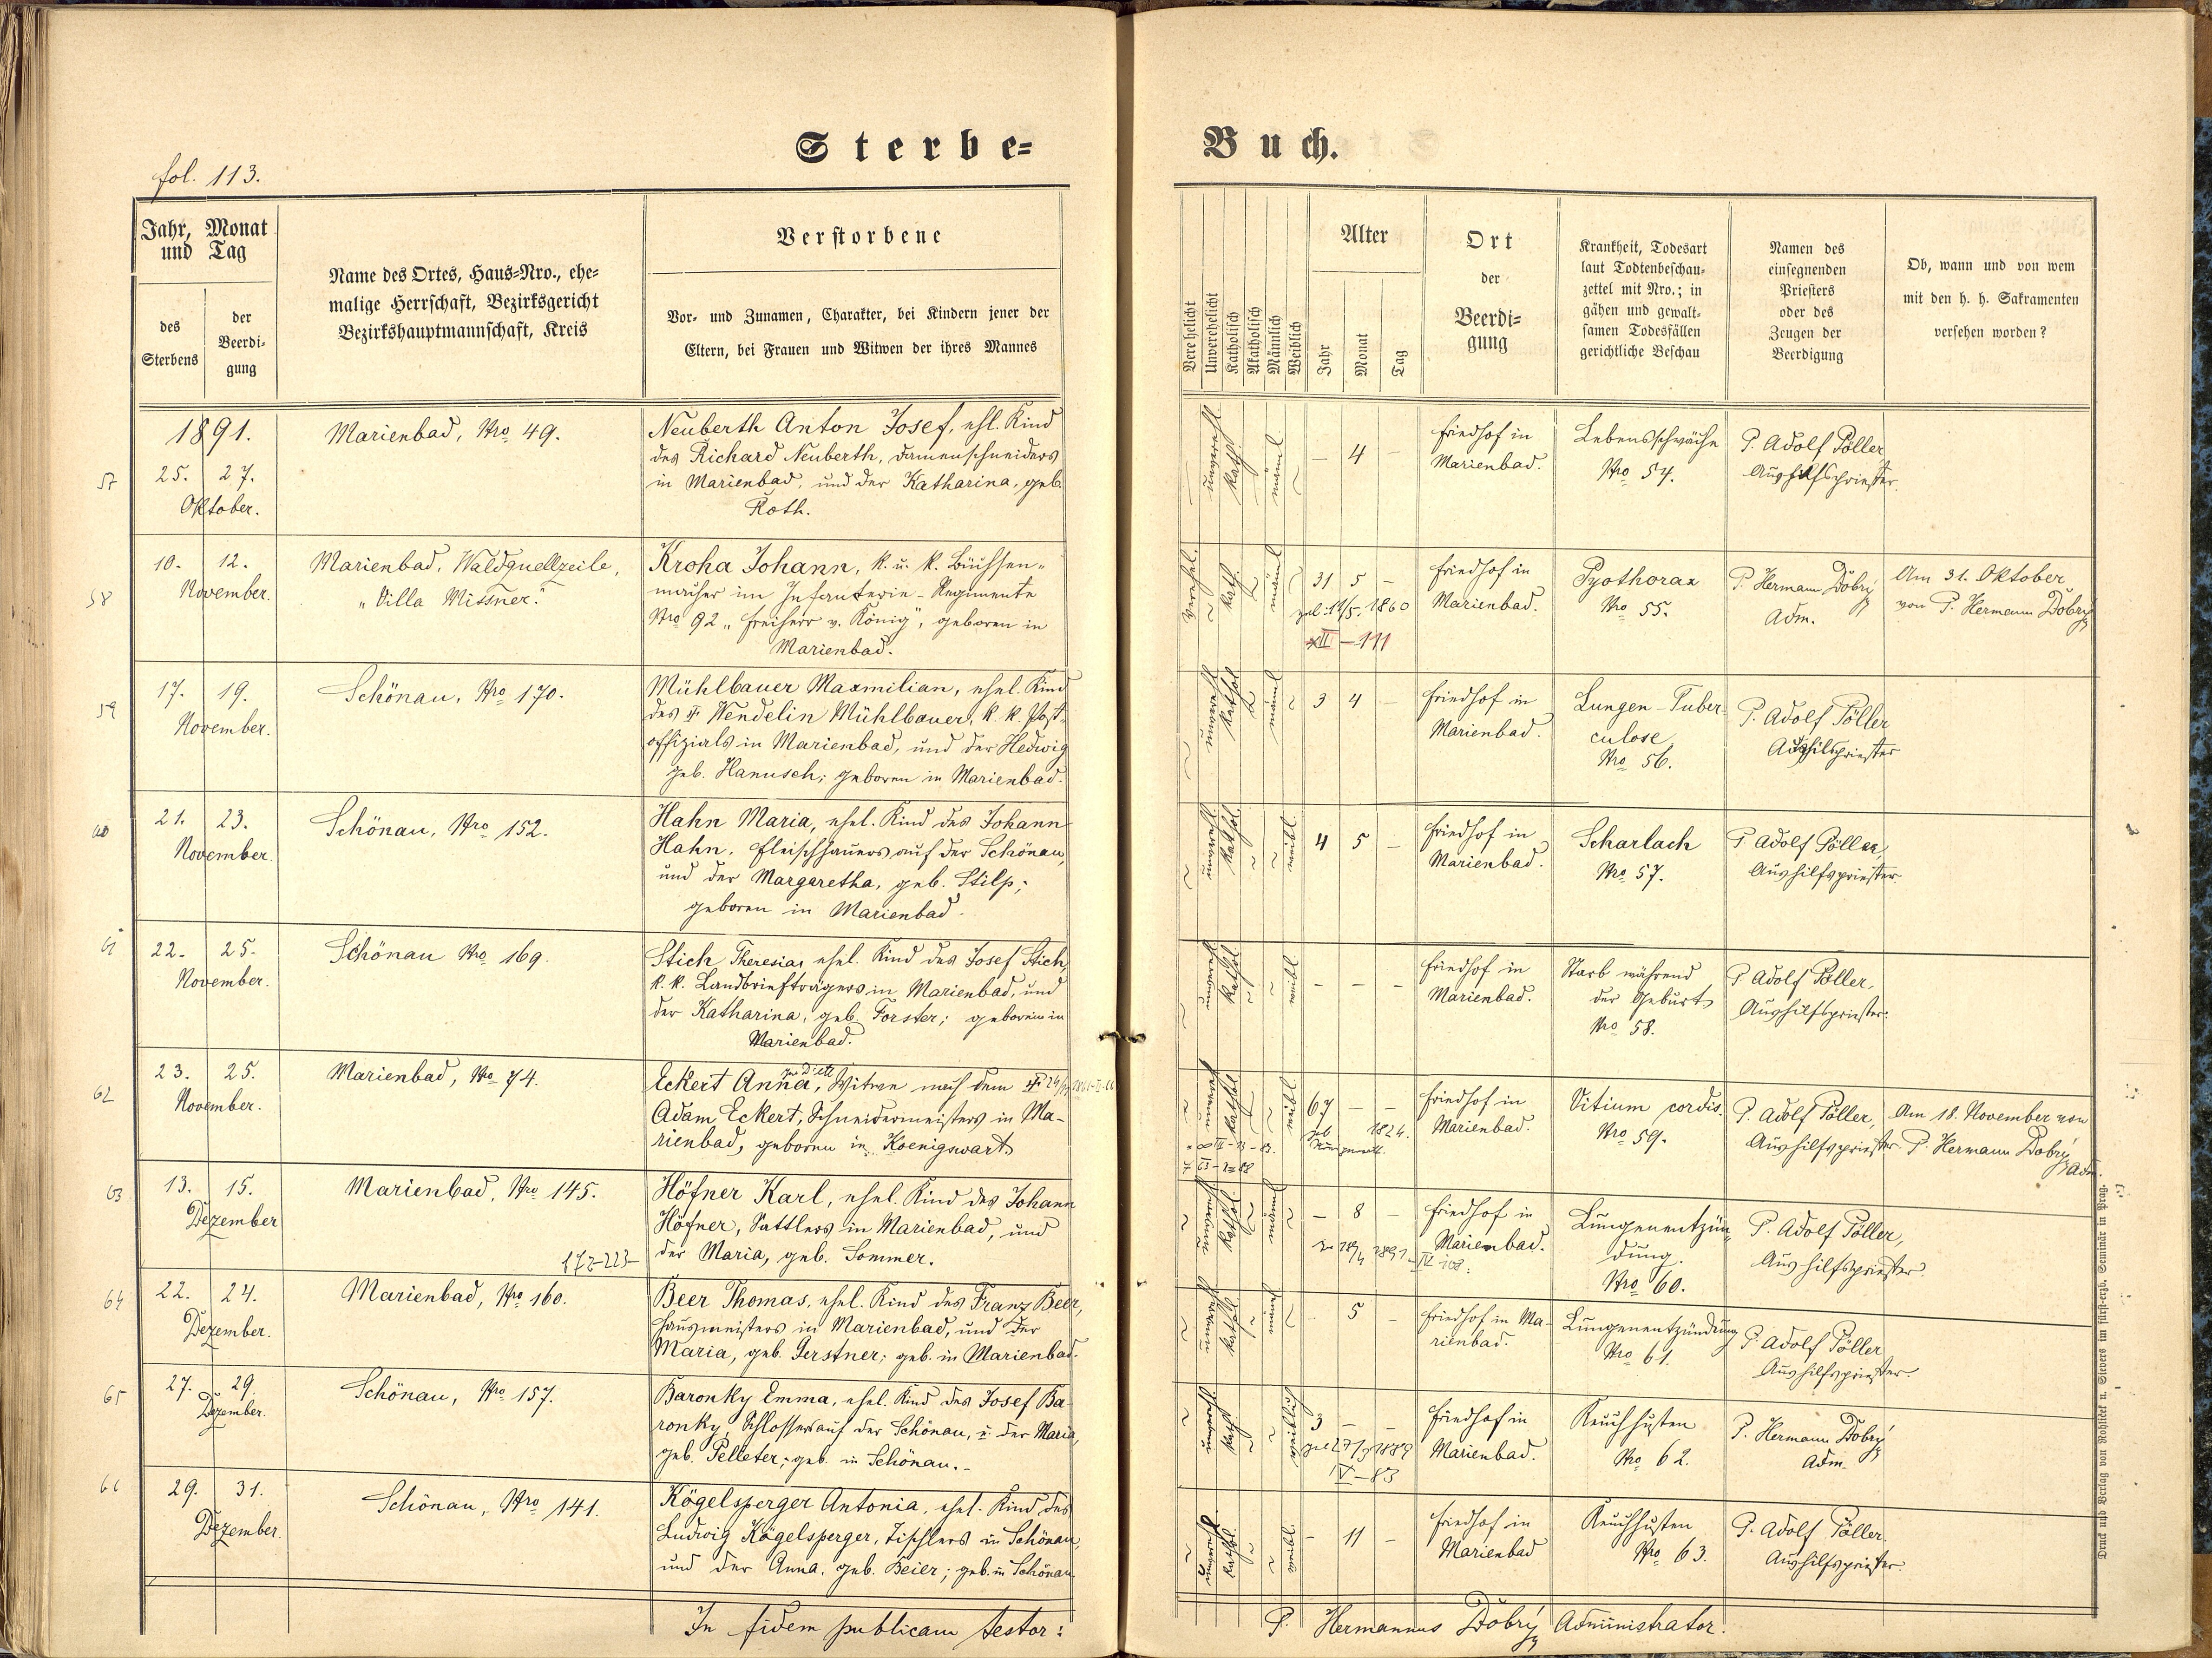 Sterbe=
Buch.
fol. 113.
Jahr, Monat
und Tag
des
Sterbens
der
Beerdi-
gung
Name des Ortes, Haus-Nro., ehe-
malige Herrschaft, Bezirksgericht
Bezirkshauptmannschaft, Kreis
Verstorbene
Vor- und Zunamen, Charakter, bei Kindern jener der
Eltern, bei Frauen und Witwen der ihres Mannes
Verehelicht
Unverehelicht
Katholisch
Akatholisch
Männlich
Weiblich
Alter
Jahr
Monat
Tag
Ort
der
Beerdi-
gung
Krankheit, Todesart
laut Todtenbeschau-
zettel mit Nro.; in
gähen und gewalt-
samen Todesfällen
gerichtliche Beschau
Namen des
einsegnenden
Priesters
oder des
Zeugen der
Beerdigung
Ob, wann und von wem
mit den h. h. Sakramenten
versehen worden?
57
1891.
25. 27.
Oktober.
Marienbad, Nro 49.
Neuberth Anton Josef, ehl. Kind
des Richard Neuberth, Damenschneiders
in Marienbad, und der Katharina, geb.
Roth.
unverehl.
Kath.
männl.
– 4 –
Friedhof in
Marienbad.
Lebensschwäche
Nro 54.
P. Adolf Pöller
Aushilfspriester.
58
10. 12.
November.
Marienbad, Waldquellzeile,
"Villa Missner."
Kroha Johann, k. u. k. Büchsen-
macher im Infanterie-Regimente
Nro 92 "Freiherr v. König", geboren in
Marienbad.
verehel.
Kath.
männl.
31 5 –
geb. 14/5. 1860
XII – 111
Friedhof in
Marienbad.
Pyothorax
Nro 55.
P. Hermann Dobrý
Adm.
Am 31. Oktober
von P. Hermann Dobrý
59
17. 19.
November.
Schönau, Nro 170.
Mühlbauer Maxmilian, ehel. Kind
des † Wendelin Mühlbauer, k. k. Post-
offizials in Marienbad, und der Hedwig
geb. Hanusch; geboren in Marienbad.
unverehl.
Kathol.
männl.
3 4 –
Friedhof in
Marienbad.
Lungen-Tuber
culose
Nro 56.
P. Adolf Pöller
Aushilfspriester
60
21. 23.
November.
Schönau, Nro 152.
Hahn Maria, ehel. Kind des Johann
Hahn, Fleischhauers auf der Schönau,
und der Margaretha, geb. Stilp;
geboren in Marienbad.
unverehl.
Kathol.
weibl.
4 5 –
Friedhof in
Marienbad.
Scharlach
Nro 57.
P. Adolf Pöller,
Aushilfspriester.
61
22. 25.
November.
Schönau Nro 169.
Stich Theresia, ehel. Kind des Josef Stich,
k. k. Landbriefträgers in Marienbad, und
der Katharina, geb. Forster; geboren in
Marienbad.
unverehl.
Kathol.
weibl.
– – –
Friedhof in
Marienbad.
Starb während
der Geburt
Nro 58.
P. Adolf Pöller,
Aushilfspriester.
62
23. 25.
November.
Marienbad, Nro 74.
Eckert Anna, Witwe nach dem †
Adam Eckert, Schneidermeisters in Ma-
rienbad, geboren in Koenigswart.
Kathol.
weibl.
67 – –
geb. 1824.
Friedhof in
Marienbad.
Vitium cordis.
Nro 59.
P. Adolf Pöller,
Aushilfspriester.
Am 18. November von
P. Hermann Dobrý
Adm.
63
13. 15.
Dezember
Marienbad, Nro 145.
Höfner Karl, ehel. Kind des Johann
Höfner, Sattlers in Marienbad, und
der Maria, geb. Sommer.
unverehl.
Kathol.
männl.
– 8 –
Friedhof in
Marienbad.
Lungenentzün-
dung
Nro 60.
P. Adolf Pöller,
Aushilfspriester.
64
22. 24.
Dezember.
Marienbad, Nro 160.
Beer Thomas, ehel. Kind des Franz Beer,
Hausmeisters in Marienbad, und der
Maria, geb. Gerstner; geb. in Marienbad.
unverehl.
Kathol.
männl.
5 –
Friedhof in Ma-
rienbad.
Lungenentzündung
Nro 61.
P. Adolf Pöller
Aushilfspriester.
65
27. 29.
Dezember.
Schönau, Nro 157.
Baronky Emma, ehel. Kind des Josef Ba-
ronky, Schlosser auf der Schönau, u. der Maria,
geb. Pelleter; geb. in Schönau.
unverehl.
Kath.
weiblich
3 – –
IV – 83
Friedhof in
Marienbad.
Keuchhusten
Nro 62.
P. Hermann Dobrý
Adm.
66
29. 31.
Dezember.
Schönau, Nro 141.
Kögelsperger Antonia, ehel. Kind des
Ludwig Kögelsperger, Tischlers in Schönau,
und der Anna, geb. Beier; geb. in Schönau
unverehl.
Kathol.
weibl.
– 11 –
Friedhof in
Marienbad
Keuchhusten
Nro 63.
P. Adolf Pöller.
Aushilfspriester.
In fidem publicam testor:
P. Hermannus Dobrý Administrator.
Druck und Verlag von Rohliček u. Sievers im fürst-erzb. Seminär in Prag.